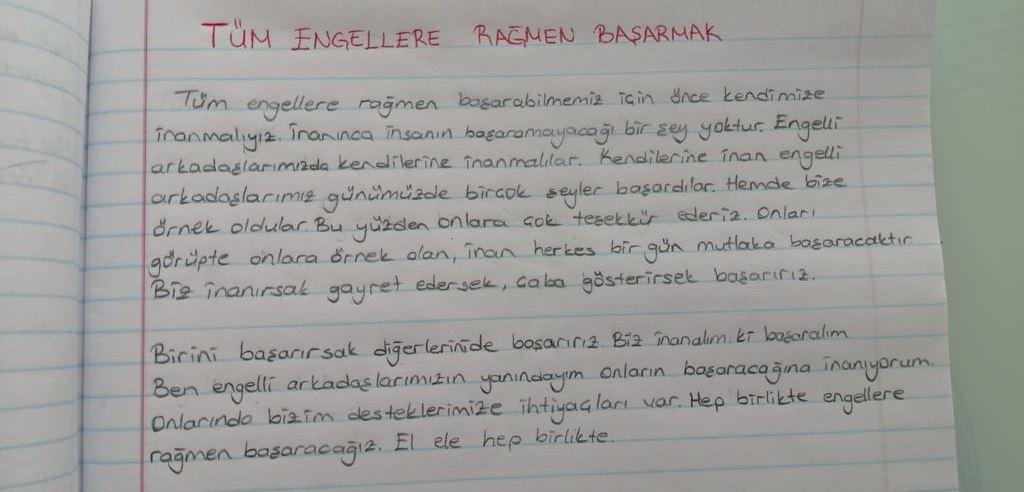 TÜM ENGELLERE RAĞMEN BAŞARMAK
Tüm engellere rağmen başarabilmemiz için önce kendimize
inanmalıyız. İnanınca insanın başaramayacağı bir şey yoktur. Engelli
arkadaşlarımızda kendilerine inanmalılar. Kendilerine inan engelli
arkadaşlarımız günümüzde birçok şeyler başardılar. Hemde bize
örnek oldular. Bu yüzden onlara çok teşekkür ederiz. Onları
görüpte onlara örnek olan, inan herkes bir gün mutlaka başaracaktır
Biz inanırsak gayret edersek, çaba gösterirsek başarırız.
Birini başarırsak diğerlerinide başarırız. Biz inanalım ki başaralım
Ben engelli arkadaşlarımızın yanındayım onların başaracağına inanıyorum.
Onlarında bizim desteklerimize ihtiyaçları var. Hep birlikte engellere
rağmen başaracağız. El ele hep birlikte.